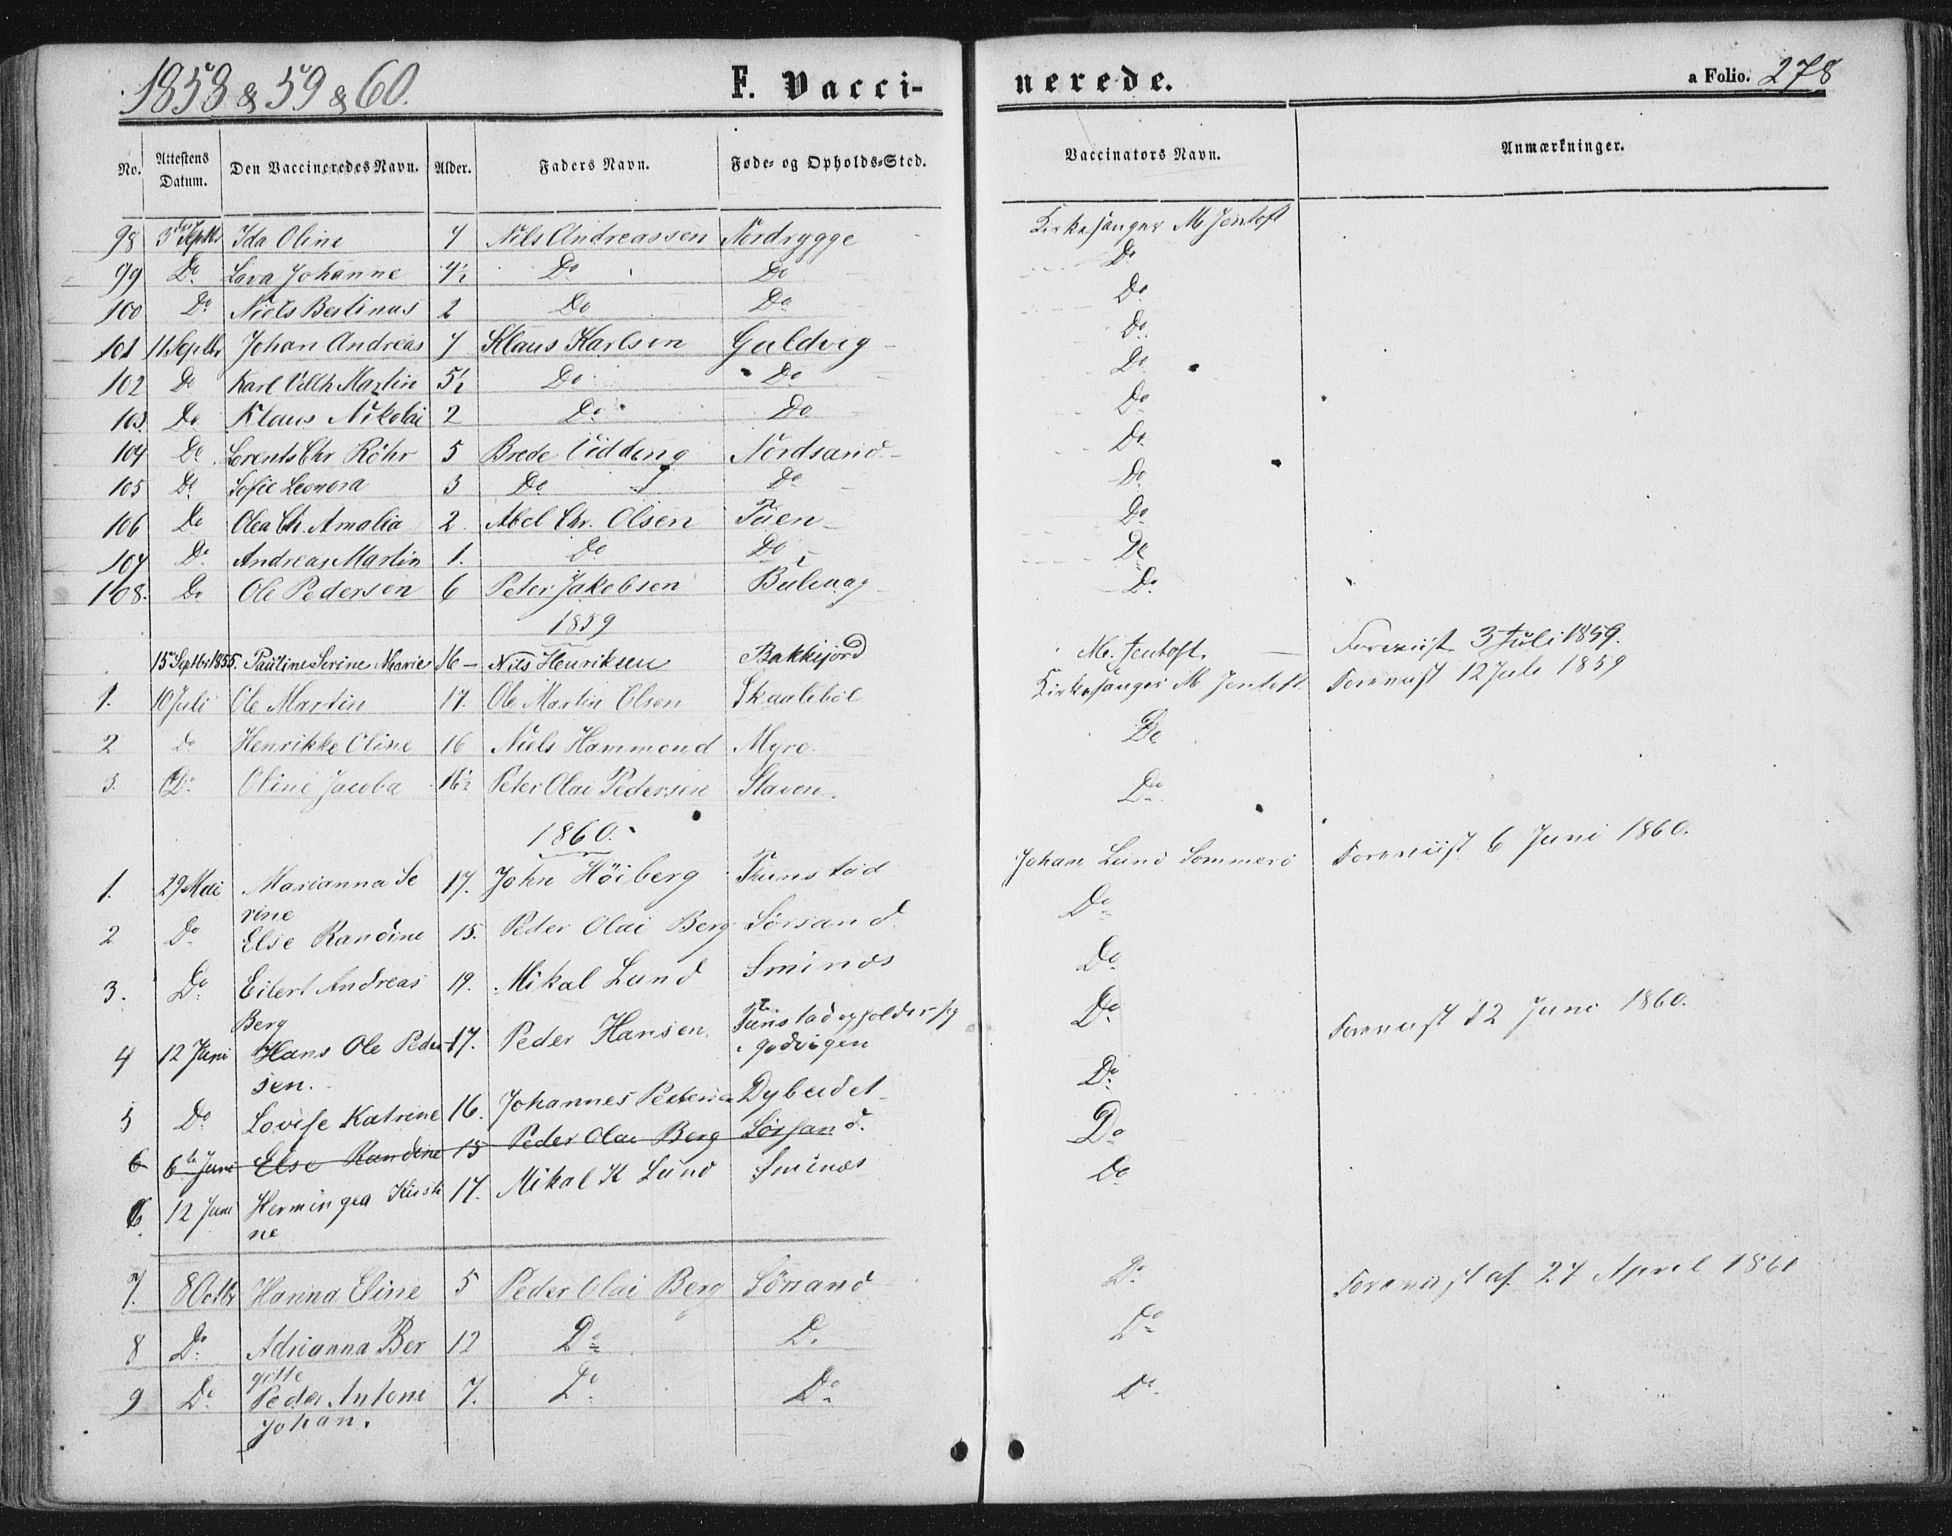 1858 & 59 & 60. F. Vaccinerede. a Folio. 278
No. Attestens Datum. Den Vaccineredes Navn. Alder. Faders Navn. Føde- og Opholds-Sted. Vaccinators Navn. Anmærkninger.
98 3die Septbr Ida Oline 7 Nils Andreassen Nordrygge Kirkesanger M Jentoft
99 Do Lava Johanne 4½ Do Do Do
100 Do Niels Bertinus 2 Do Do Do
101 11 Septbr Johan Andreas 7 Klaus Karlsen Guldvig Do
102 Do Karl Vilh Martin 5½ Do Do Do
103. Do Klaus Nikolai 2 Do Do Do
104 Do Lorents Chr Röhr 5 Brede Uidding Nordsand Do
105 Do Sofie Leonora 3 Do Do Do
106 Do Olea Ch. Amalia 2. Abel Chr. Olsen Tuen Do
107 Do Andreas Martin 1. Do Do De
108. Do Ole Pedersen 6 Peter Jakobsen Bulvaag Do
1859
15 Septbr 1855. Pauline Serine Marie 16 Nils Henriksen Bakkejord M. Jentoft. Foreviist 3 Juli 1859.
1. 10 Juli Ole Martin 17. Ole Martin Olsen Skaaleböl Kirkesanger M Jentoft Foreviist 12 Juli 1859
2 do Henrikke Oline 16 Niels Hammond Myre. Do
3. Do Oline Jacoba 16½ Peter Olai Pedersen Staven. Do
1860.
1. 29 Mai Marianna Se 17. John Höiberg Tunstad Johan Lund Sommerö Foreviist 6 Juni 1860.
rine
2 Do Else Randine 15. Peder Olai Berg Sörsand. Do
3. Do Eilert Andreas 19. Mikal Lund Sminæs Do
Berg
4 12 Juni Hans Ole Peder 17. Peder Hansen Tunstad opholder sig Do Foreviist 12 Juni 1860.
sen. i godvigen
5 Do Lovise Katrine 16. Johannes Petersen Dybeidet Do
6 6te Juni Else Randine 15 Peder Olai Berg Sörsand. Do
6. 12 Juni Hermingea Kirsti 17. Mikal K Lund Sminæs Do
ne
7. 8 Octbr Hanna Eline 5 Peder Olai Berg Sörsand Do Foreviist af 27 April 1861
8 Do Adrianna Ber 12 Do Do Do
gitte
9 Do Peder Antoni 7. Do Do Do
Johan.